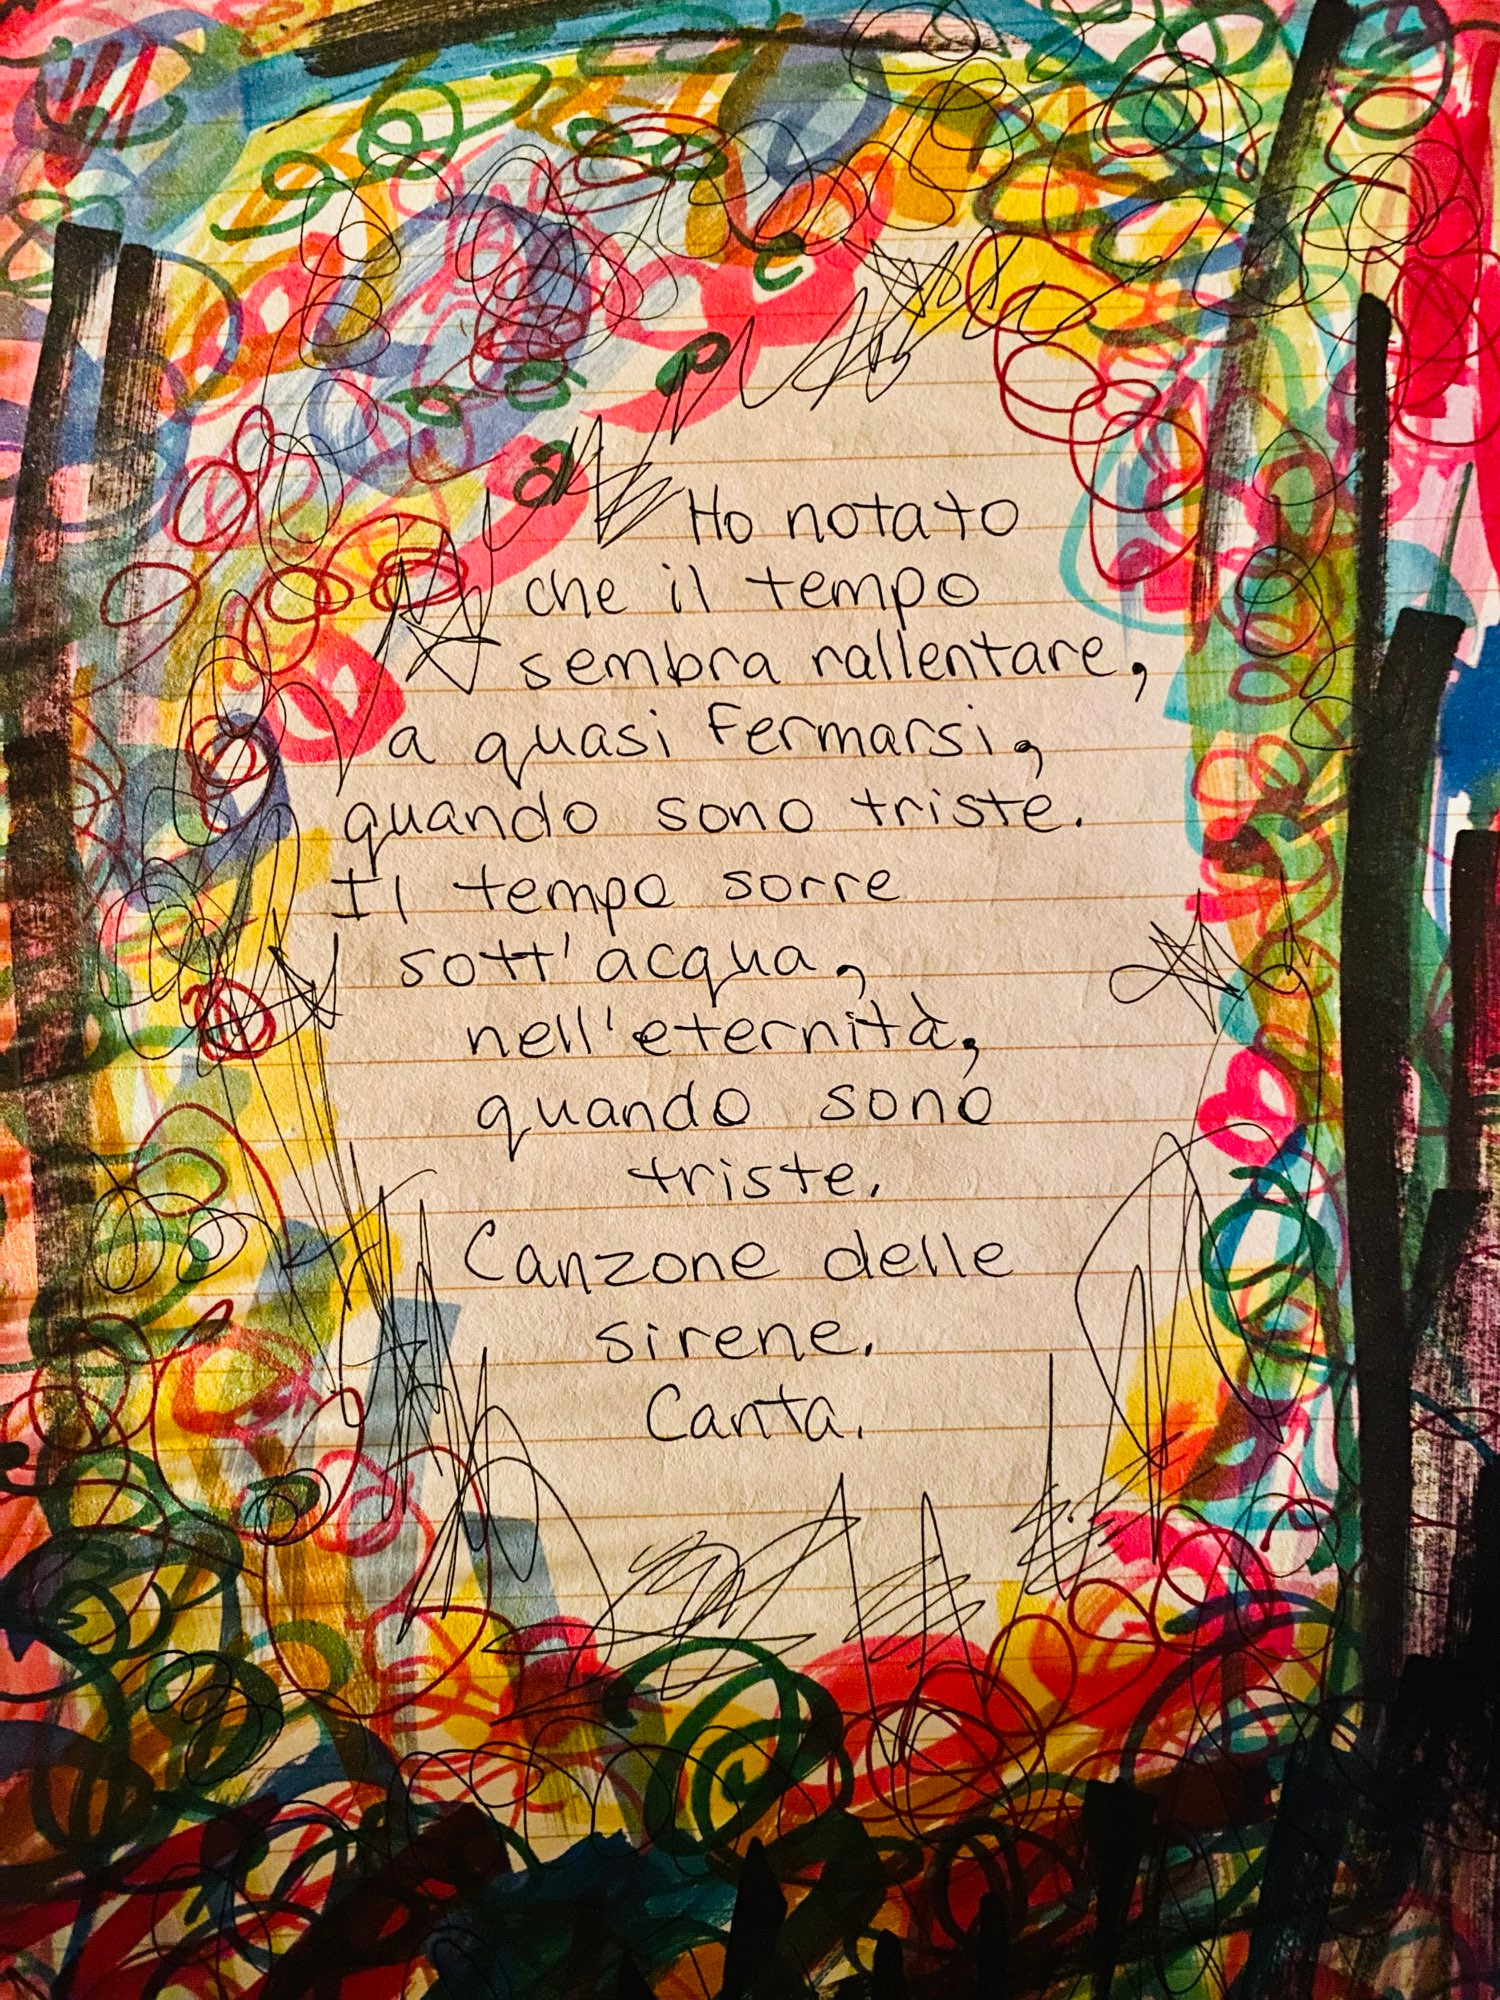 Ho notato
che il tempo
sembra rallentare,
a quasi fermarsi,
quando sono triste.
Il tempo sorre
sott'acqua,
nell'eternità,
quando sono
triste.
Canzone delle
sirene.
Canta.